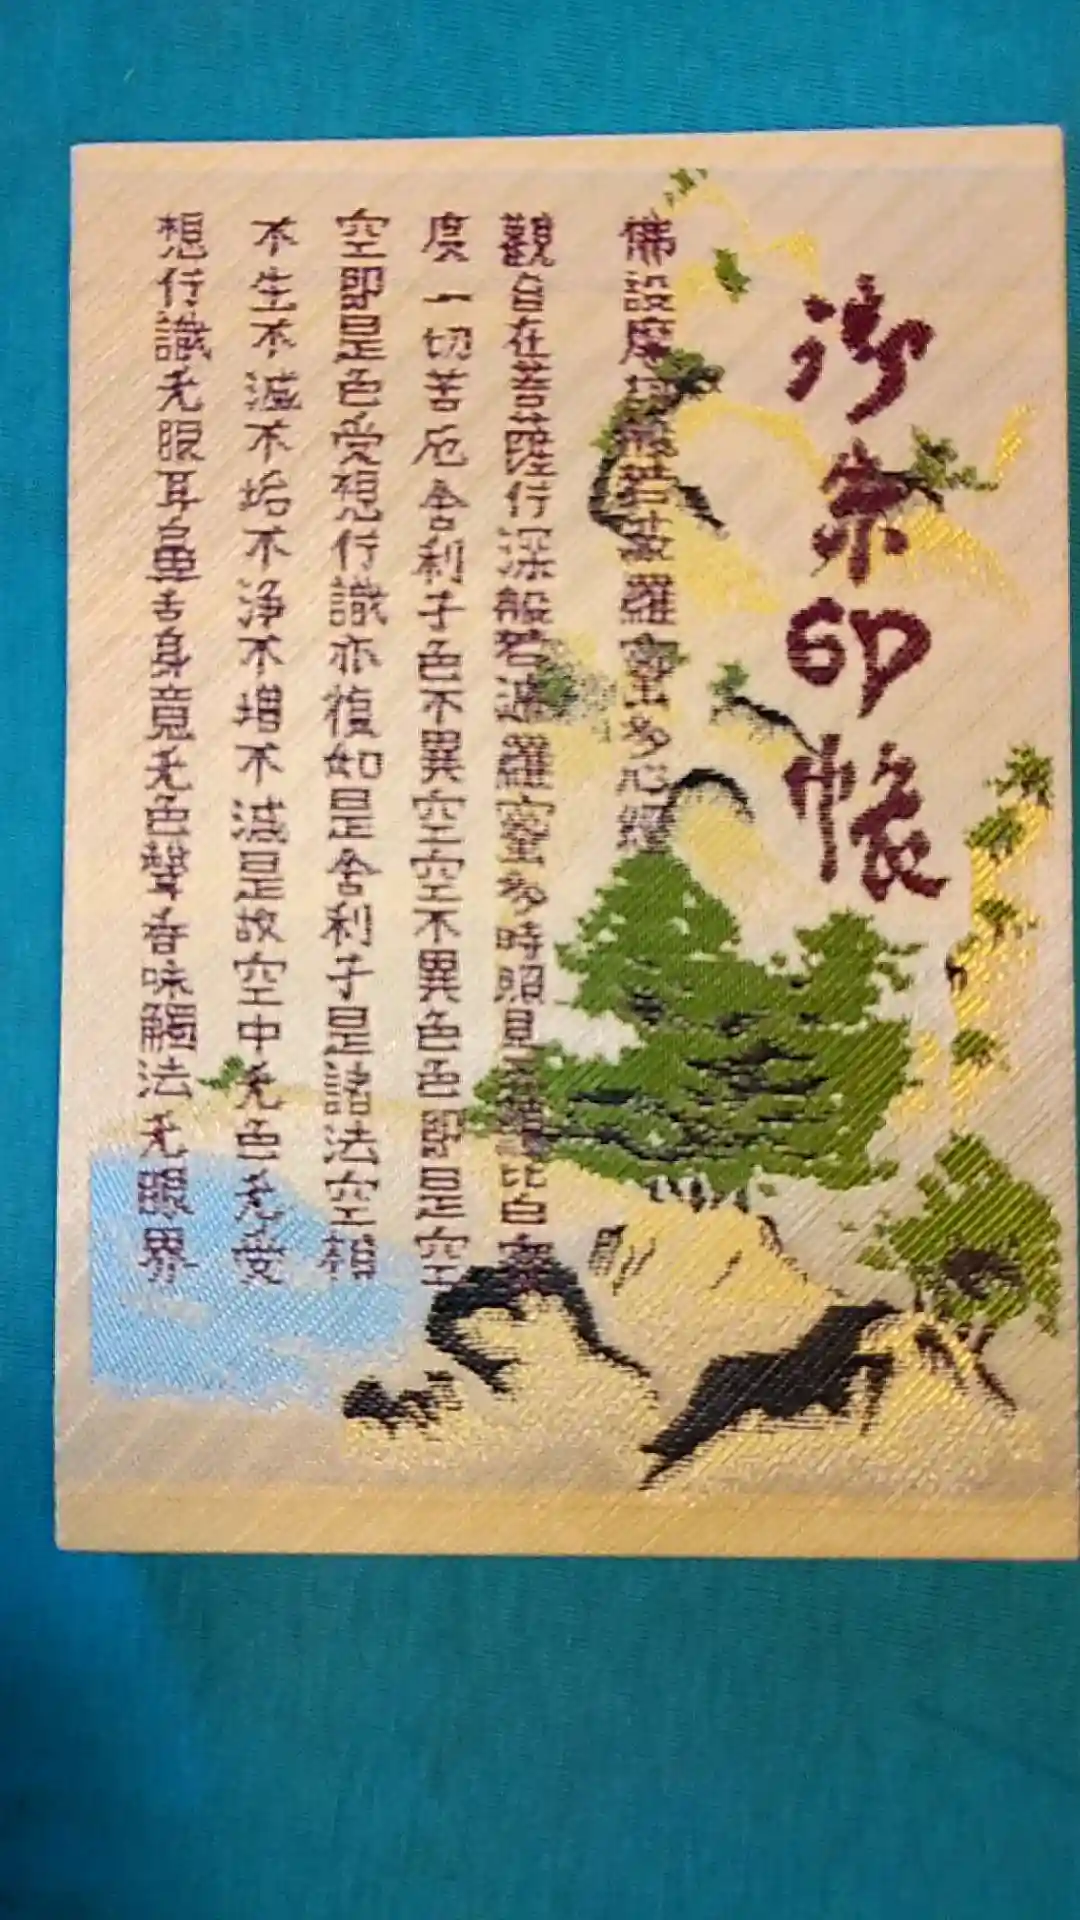 御朱印帳
佛設摩訶般若波羅蜜多心經
觀自在菩薩行深般若波羅蜜多時照見五蘊皆空
度一切苦厄舍利子色不異空空不異色色即是空
空即是色受想行識亦復如是舍利子是諸法空相
不生不滅不垢不浄不増不減是故空中无色无受
想行識无眼耳鼻舌身意无色聲香味觸法无眼界